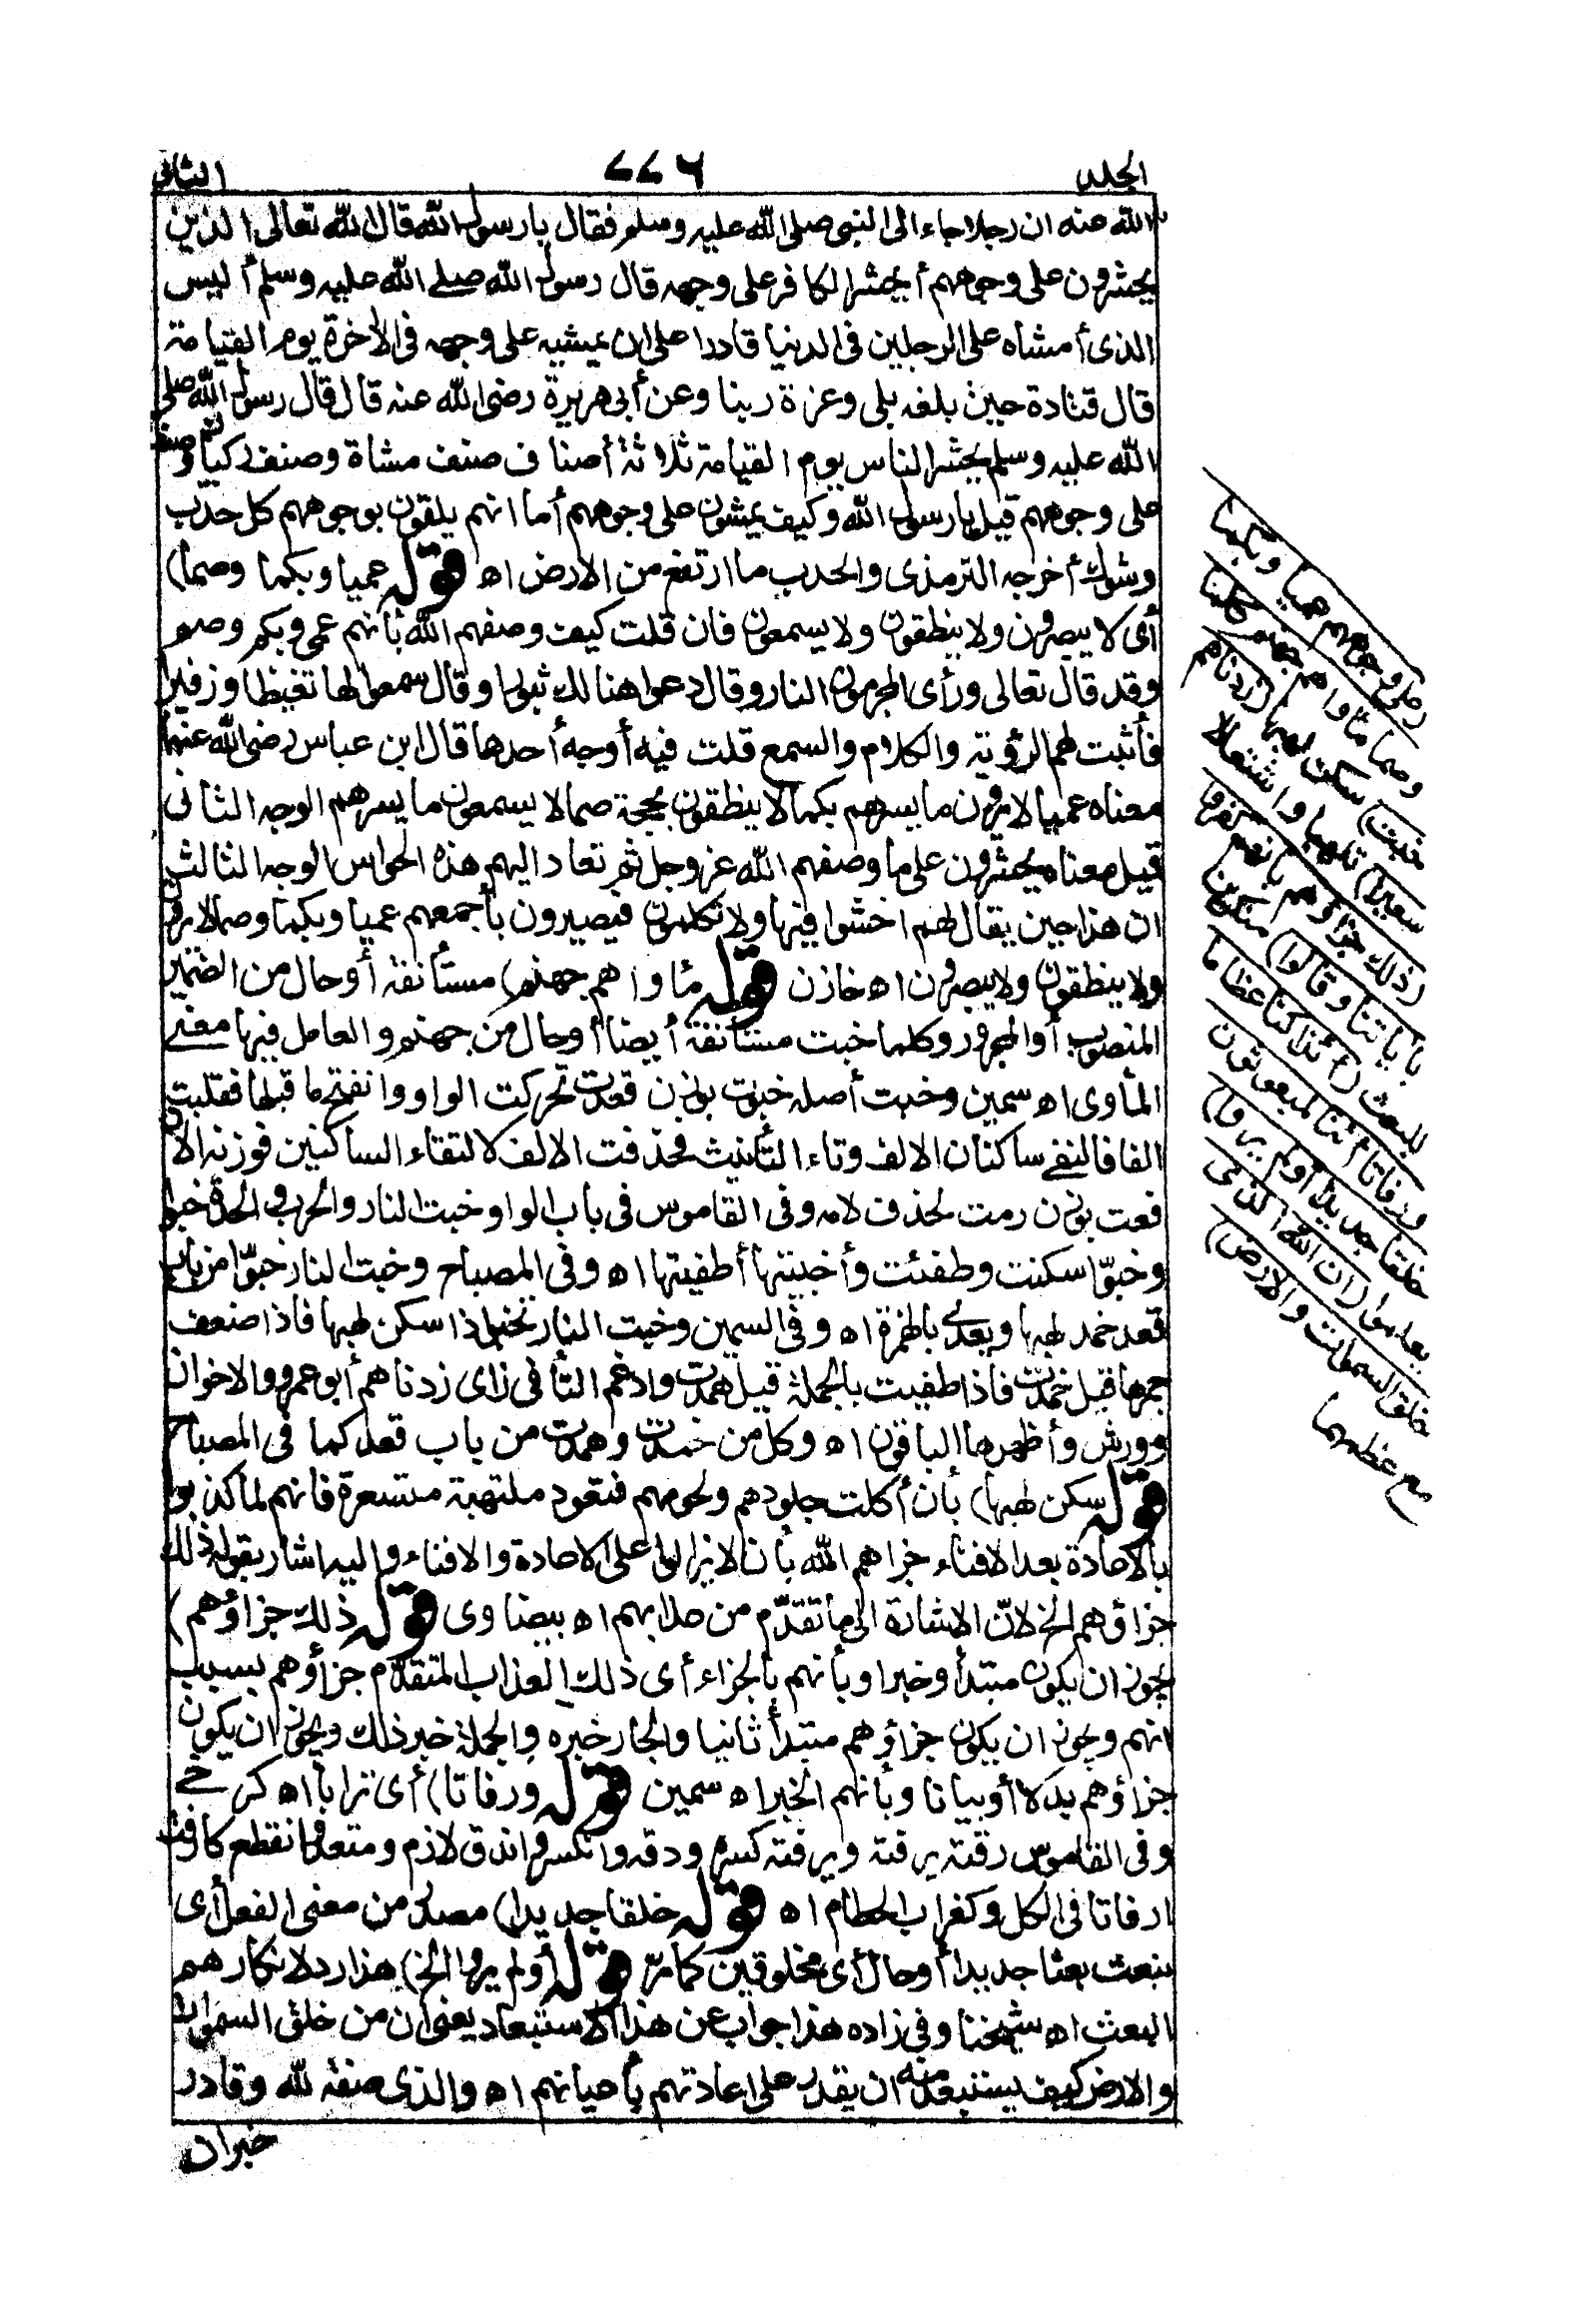 الجلد ٦٧٧ الثانى
الله عنه ان رجلا جاء الى النبى صلى الله عليه وسلم فقال يارسول الله قال الله تعالى الذين
يحشرون على وجوههم أيحشر الكافر على وجهه قال رسول الله صلى الله عليه وسلم أليس
الذى أمشاه على الرجلين فى الدنيا قادرا على ان يمشيه على وجهه فى الآخرة يوم القيامة
قال قتادة حين بلغه بلى وعزة ربنا وعن أبى هريرة رضى الله عنه قال قال رسول الله صلى
الله عليه وسلم يحشر الناس يوم القيامة ثلاثة أصناف صنف مشاة وصنف ركبانا وصنف
على وجوههم قيل يارسول الله وكيف يمشون على وجوههم أما انهم يلقون بوجوههم كل حدب
وشوك أخرجه الترمذى والحدب ما ارتفع من الارض اه قوله عميا وبكما وصما)
أى لا يبصرون ولا ينطقون ولا يسمعون فان قلت كيف وصفهم الله بأنهم عمى وبكم وصم
وقد قال تعالى ورأى المجرمون النار وقال دعوا هنالك ثبورا وقال سمعوا لها تغيظا وزفيرا
فأثبت لهم الرؤية والكلام والسمع قلت فيه أوجه أحدها قال ابن عباس رضى الله عنهما
معناه عميا لا يرون ما يسرهم بكما لا ينطقون بحجة صما لا يسمعون ما يسرهم الوجه الثانى
قيل معناه يحشرون على ما وصفهم الله عز وجل ثم تعاد اليهم هذه الحواس الوجه الثالث
ان هذا حين يقال لهم اخشوا فيها ولا تكلمون فيصيرون بأجمعهم عميا وبكما وصما لا يرون
ولا ينطقون ولا يبصرون اه خازن قوله مأواهم جهنم) مستأنفة أو حال من الضمير
المنصوب أو المجرور وكلما خبت مستأنفة أيضا أو حال من جهنم والعامل فيها معنى
المأوى اه سمين وخبت أصله خبوت بوزن قعدت تحركت الواو وانفتح ما قبلها فقلبت
الفا فالتقى ساكنان الالف وتاء التأنيث فحذفت الالف لالتقاء الساكنين فوزنه الآن
فعت بوزن رمت لحذف لامه وفى القاموس فى باب الواو خبت النار والحرب والحدة خبوا
وخبوّا سكنت وطفئت وأخبيتها أطفيتها اه وفى المصباح وخبت النار خبوّا من باب
قعد خمد لهبها ويعدى بالهمزة اه وفى السمين وخبت النار تخبو اذا سكن لهبها فاذا ضعف
جمرها قيل خمدت فاذا طفيت بالجملة قيل همدت وادغم التأ فى زاى زدناهم أبو عمرو والاخوان
وورش وأظهرها الباقون اه وكل من خمدت وهمدت من باب قعد كما فى المصباح
قوله سكن لهبها) بأن أكلت جلودهم ولحومهم فتعود ملتهبة متسعرة فانهم لما كذبوا
بالاعادة بعد الافناء جزاهم الله بأن لا يزالوا على الاعادة والافناء واليه اشار بقوله ذلك
جزاؤهم الخ لانّ الاشارة الى ما تقدّم من عذابهم اه بيضاوى قوله ذلك جزاؤهم)
يجوز ان يكون مبتدأ وخبرا وبأنهم بالجزاء أى ذلك العذاب المتقدّم جزاؤهم بسبب
انهم ويجوز ان يكون جزاؤهم مبتدأ ثانيا والجار خبره والجملة خبر ذلك ويجوز ان يكون
جزاؤهم بدلا أو بيانا وبأنهم الخبر اه سمين قوله ورفاتا) أى ترابا اه كرخى
وفى القاموس رفته يرفته ويرفته كسره ودقه وانكسر واندق لازم ومتعد وانقطع كارفت
ارفاتا فى الكل وكغراب الحطام اه قوله خلقا جديدا) مصدر من معنى الفعل أى
نبعث بعثا جديدا أو حال أى مخلوقين كما مرّ قوله أولم يروا الخ) هذا رد لانكارهم
البعث اه شيخنا وفى زاده هذا جواب عن هذا الاستبعاد يعنى ان من خلق السموات
والارض كيف يستبعد منه ان يقدر على اعادتهم بأعيانهم اه والذى صفة لله وقادر
خبر ان
(على وجوههم عميا وبكما
وصما مأواهم جهنم كلما
خبت) سكن لهبها (زدناهم
سعيرا) تلهبا واشتعالا
(ذلك جزاؤهم بأنهم كفروا
بآياتنا وقالوا) منكرين
للبعث (أئذا كنا عظاما
ورفاتا أئنا لمبعوثون
خلقا جديدا أولم يروا)
يعلموا (ان الله الذى
خلق السموات والارض)
مع عظمهما